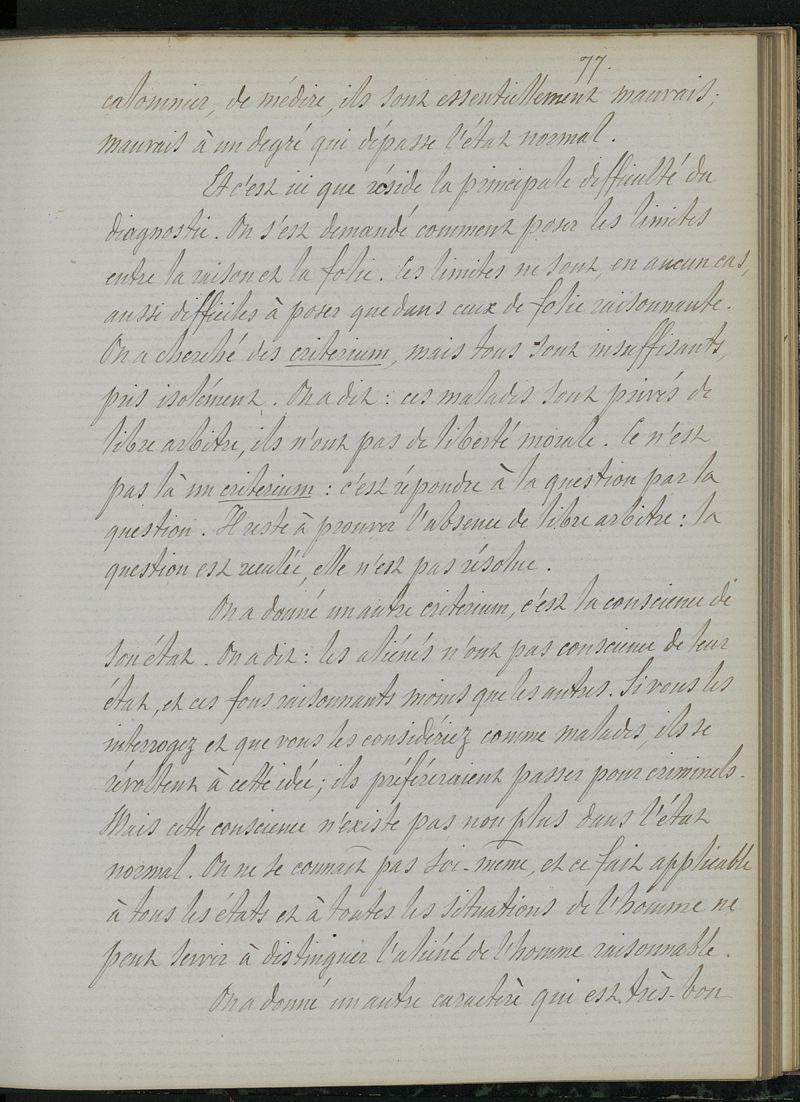 77.
calomnier, de médire, ils sont essentiellement mauvais;
mauvais à un degré qui dépasse l'état normal.
Et c'est ici que réside la principale difficulté du
diagnostic. On s'est demandé comment poser les limites
entre la raison et la folie. Ces limites ne sont, en aucun cas,
aussi difficiles à poser que dans ceux de folie raisonnante.
On a cherché des criterium, mais tous sont insuffisants,
pris isolément. On a dit : ces malades sont privés de
libre arbitre, ils n'ont pas de liberté morale. Ce n'est
pas là un criterium : c'est répondre à la question par la
question. Il reste à prouver l'absence de libre arbitre : la
question est reculée, elle n'est pas résolue.
On a donné un autre criterium, c'est la conscience de
son état. On a dit : les aliénés n'ont pas conscience de leur
état, et ces fous raisonnants moins que les autres. Si vous les
interrogez et que vous les considériez comme malades, ils se
révoltent à cette idée; ils préféreraient passer pour criminels.
Mais cette conscience n'existe pas non plus dans l'état
normal. On ne se connaît pas soi-même, et ce fait applicable
à tous les états et à toutes les situations de l'homme ne
peut servir à distinguer l'aliéné de l'homme raisonnable.
On a donné un autre caractère qui est très-bon